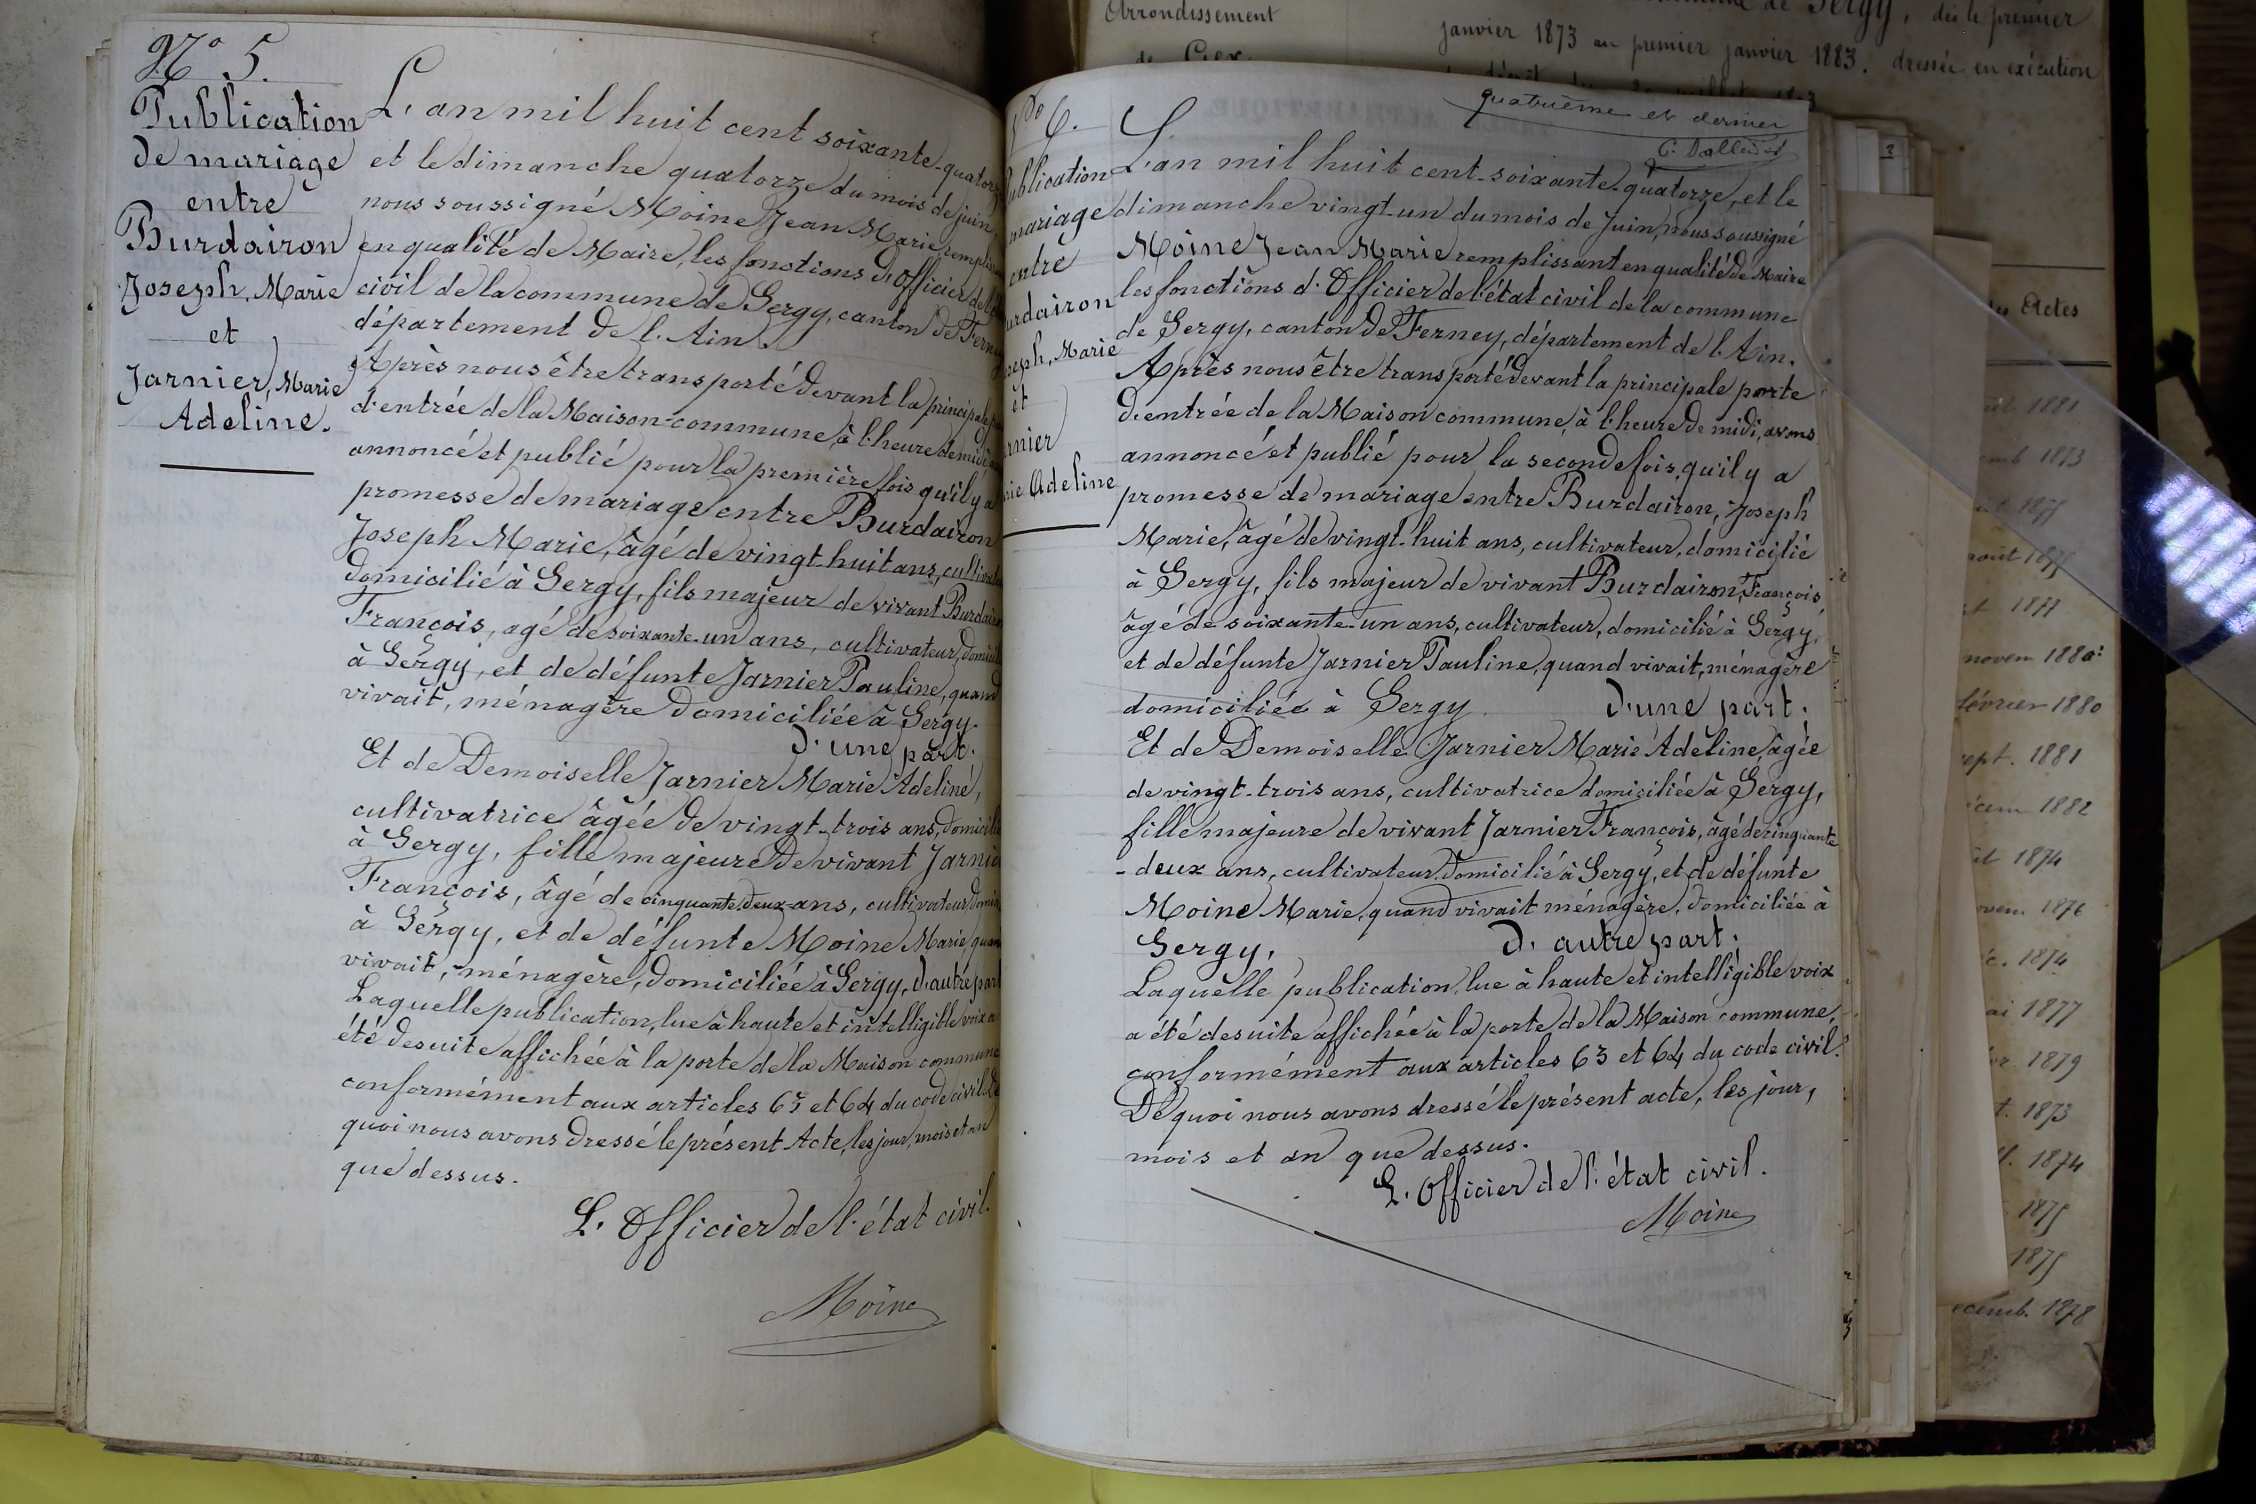 Nº 5.
Publication
de mariage
entre
Burdairon
Joseph, Marie
et
Jarnier, Marie
Adeline.
L'an mil huit cent soixante-quatorze
et le dimanche quatorze du mois de juin,
nous soussigné Moine Jean Marie remplissant
en qualité de Maire, les fonctions d'Officier de l'état
civil de la commune de Sergy, canton de Ferney
département de l'Ain.
Après nous être transporté devant la principale porte
d'entrée de la Maison commune, à l'heure de midi
annoncé et publié pour la première fois qu'il y a
promesse de mariage entre Burdairon
Joseph Marie, âgé de vingt-huit ans, cultivateur
domicilié à Sergy, fils majeur de vivant Burdairon
François, agé de soixante-un ans, cultivateur, domicilié
à Sergy, et de défunte Jarnier Pauline, quand
vivait, ménagère domiciliée à Sergy.
d'une part.
Et de Demoiselle Jarnier Marie Adeline,
cultivatrice âgée de vingt-trois ans, domiciliée
à Sergy, fille majeure de vivant Jarnier
François, âgé de cinquante-deux ans, cultivateur domicilié
à Sergy, et de défunte Moine Marie quand
vivait, ménagère, domiciliée à Sergy, d'autre part
Laquelle publication, lue à haute et intelligible voix a
été de suite affichée à la porte de la Maison commune
conformément aux articles 63 et 64 du code civil. De
quoi nous avons dressé le présent Acte, les jour, mois et an
que dessus.
L'Officier de l'état civil.
Moine
Arrondissement
de Gex
de Sergy, dès le premier
janvier 1873 au premier janvier 1883. dressée en exécution
quatrième et dernier
6.
ublication
mariage
entre
urdairon
seph, Marie
et
rnier
rie Adeline
L'an mil huit cent soixante-quatorze, et le
dimanche vingt-un du mois de Juin, nous soussigné
Moine Jean Marie remplissant en qualité de Maire
les fonctions d'Officier de l'état civil de la commune
de Sergy, canton de Ferney, département de l'Ain.
Après nous être transporté devant la principale porte
d'entrée de la Maison commune, à l'heure de midi, avons
annoncé et publié pour la seconde fois, qu'il y a
promesse de mariage entre Burdairon, Joseph
Marie, âgé de vingt-huit ans, cultivateur, domicilié
à Sergy, fils majeur de vivant Burdairon, François
âgé de soixante-un ans, cultivateur, domicilié à Sergy,
et de défunte Jarnier Pauline, quand vivait, ménagère
domiciliée à Sergy d'une part.
Et de Demoiselle Jarnier Marie Adeline, âgée
de vingt-trois ans, cultivatrice domiciliée à Sergy,
fille majeure de vivant Jarnier François, âgé de cinquante
-deux ans, cultivateur, domicilié à Sergy, et de défunte
Moine Marie, quand vivait ménagère, domiciliée à
Sergy, d'autre part.
Laquelle publication, lue à haute et intelligible voix
a été de suite affichée à la porte de la Maison commune,
conformément aux articles 63 et 64 du code civil.
De quoi nous avons dressé le présent acte, les jour,
mois et an que dessus.
L'Officier de l'état civil.
Moine
Actes
1881
1873
1875
août 1875
1877
novem 1880
février 1880
sept. 1881
1882
1874
1876
1874
1877
1879
1873
1874
1875
1875
1878